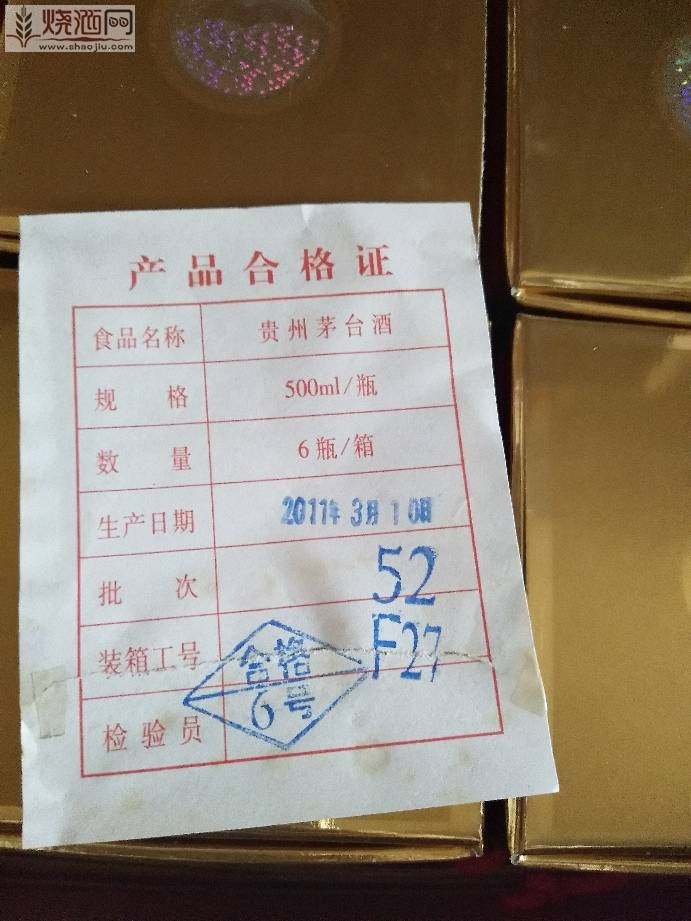 烧酒网
www.shaojiu.com
产品合格证
食品名称 贵州茅台酒
规格 500ml/瓶
数量 6瓶/箱
生产日期 2011年3月10日
批次 52
装箱工号 F27
检验员 合格
6号